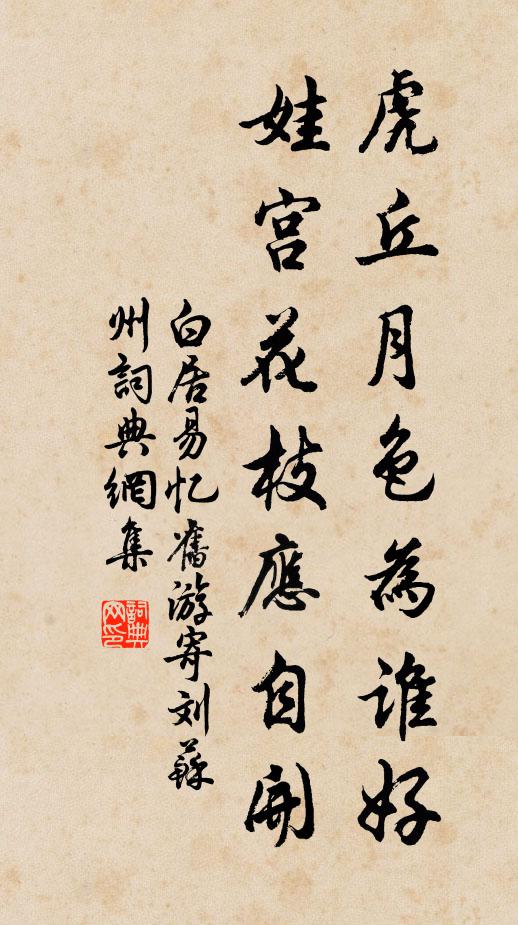 虎丘月色為誰好
娃宮花枝應自開
白居易忆舊游寄刘蘇
州詞典網集
詞典
网印